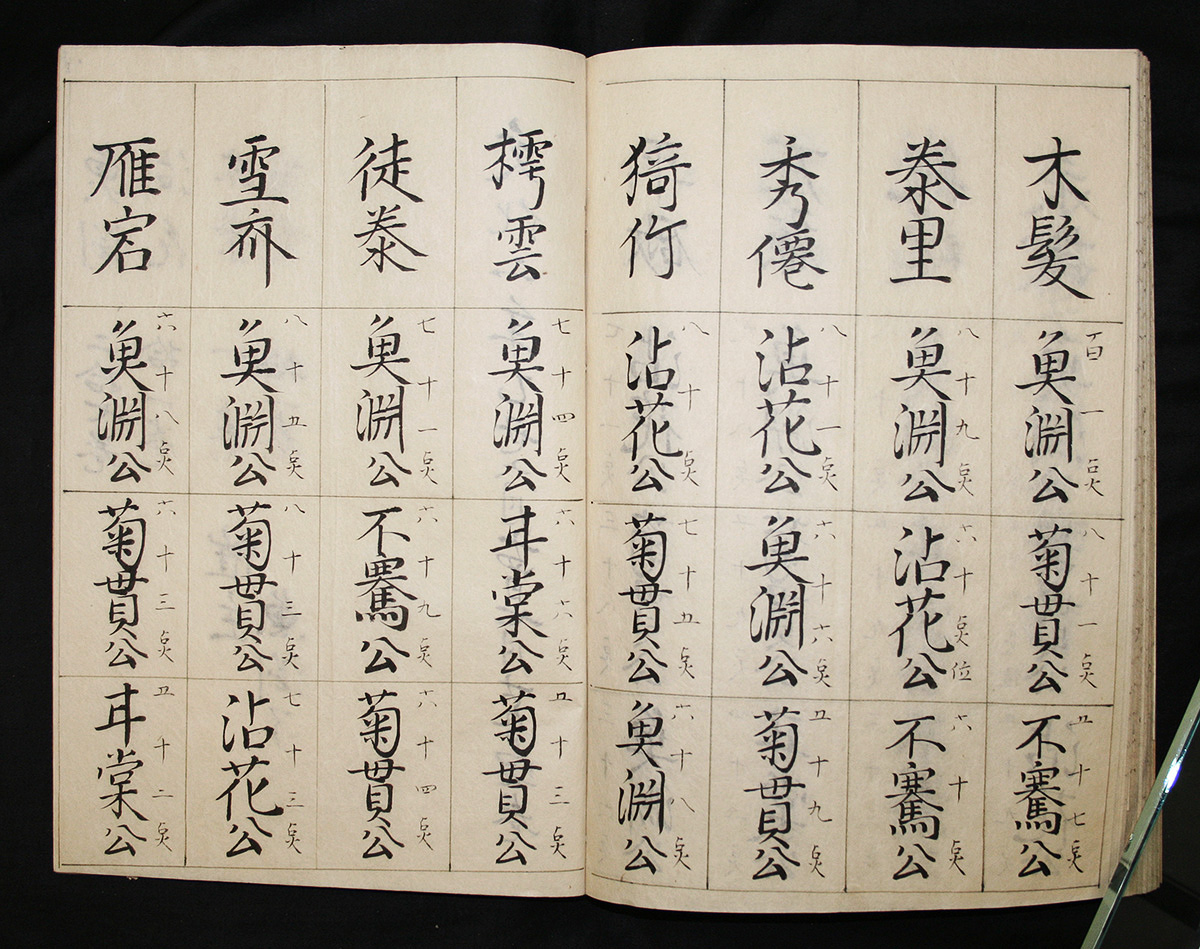 木髪
百一点
魚淵公
八十一点
菊貫公
五十七点
不騫公
泰里
八十九点
魚淵公
六十点位
沾花公
六十点
不騫公
秀僊
八十一点
沾花公
六十六点
魚淵公
五十九点
菊貫公
猗竹
八十点
沾花公
七十五点
菊貫公
六十八点
魚淵公
樗雲
七十四点
魚淵公
六十六点
甘棠公
五十三点
菊貫公
徒泰
七十一点
魚淵公
六十九点
不騫公
六十四点
菊貫公
雪斎
八十五点
魚淵公
八十三点
菊貫公
七十三点
沾花公
雁宕
六十八点
魚淵公
六十三点
菊貫公
五十二点
甘棠公